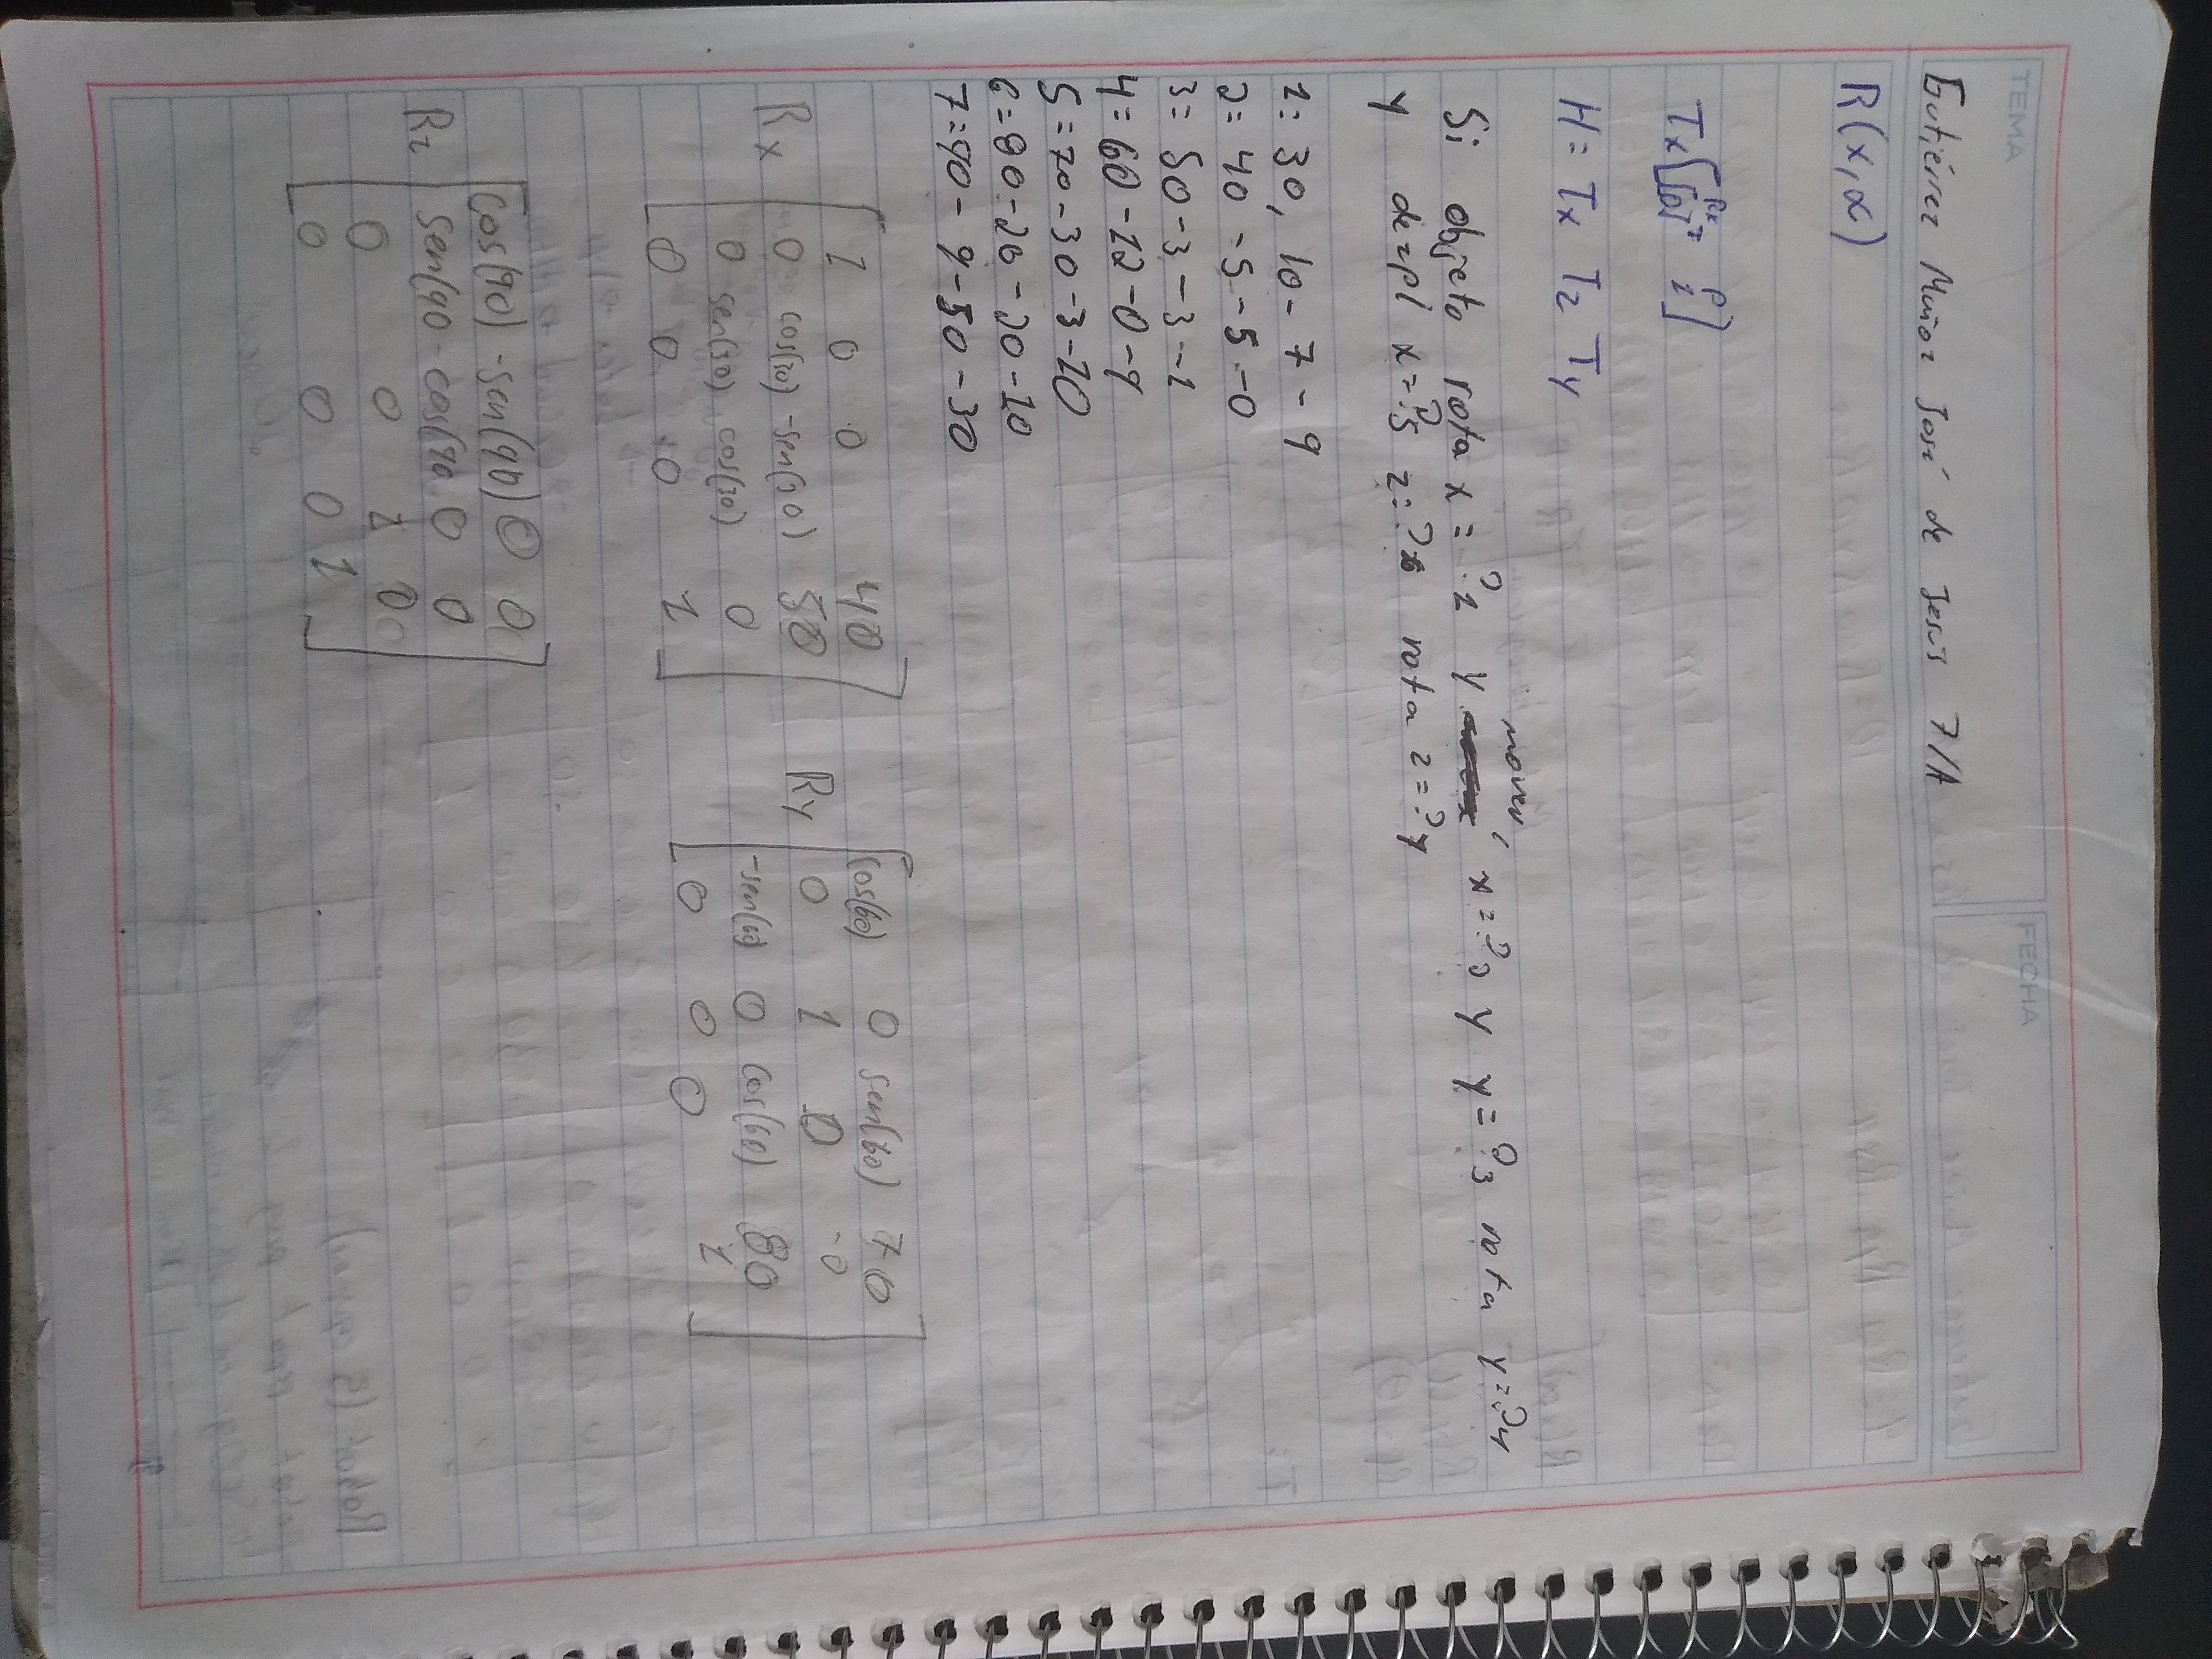 TEMA
FECHA
Gutiérrez Muñoz José de Jesus 7/A
R(x,α)
Tx
H= Tx Tz Ty
mover,
Si objeto rota x = ?1 y x=?2 y y=?3 rota y=?4
y despl x=?5 z=?6 rota z=?
1= 30, 10 - 7 - 9
2= 40 - 5 - 5 - 0
3= 50 - 3 - 3 - 1
4= 60 - 12 - 0 - 9
5= 70 - 30 - 3 - 10
6= 80 - 20 - 20 - 10
7= 90 - 9 - 50 - 30
1 0 0 40
Rx 0 cos(30) -sen(30) 50
0 sen(30) cos(30) 0
0 0 0 1
cos(60) 0 sen(60) 70
Ry 0 1 0 0
-sen(60) 0 cos(60) 80
0 0 0 1
cos(90) -sen(90) 0 0
Rz sen(90 - cos(90. 0 0
0 0 1 0
0 0 0 1